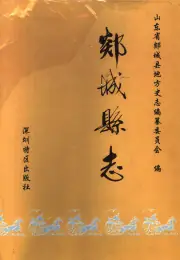 山东省郯城县地方史志编纂委员会 编
郯城縣志
深圳特区出版社